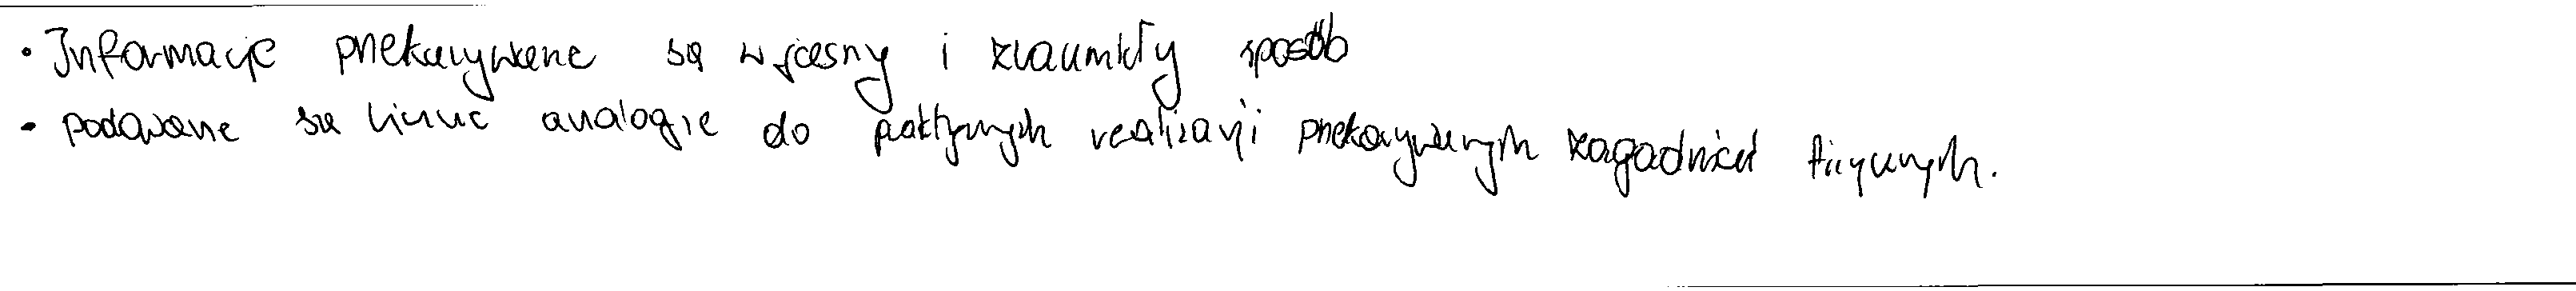 • Informacje przekazywane są w jasny i zrozumiały sposób
• podawane są liczne analogie do praktycznych realizacji przekazywanych zagadnień fizycznych.